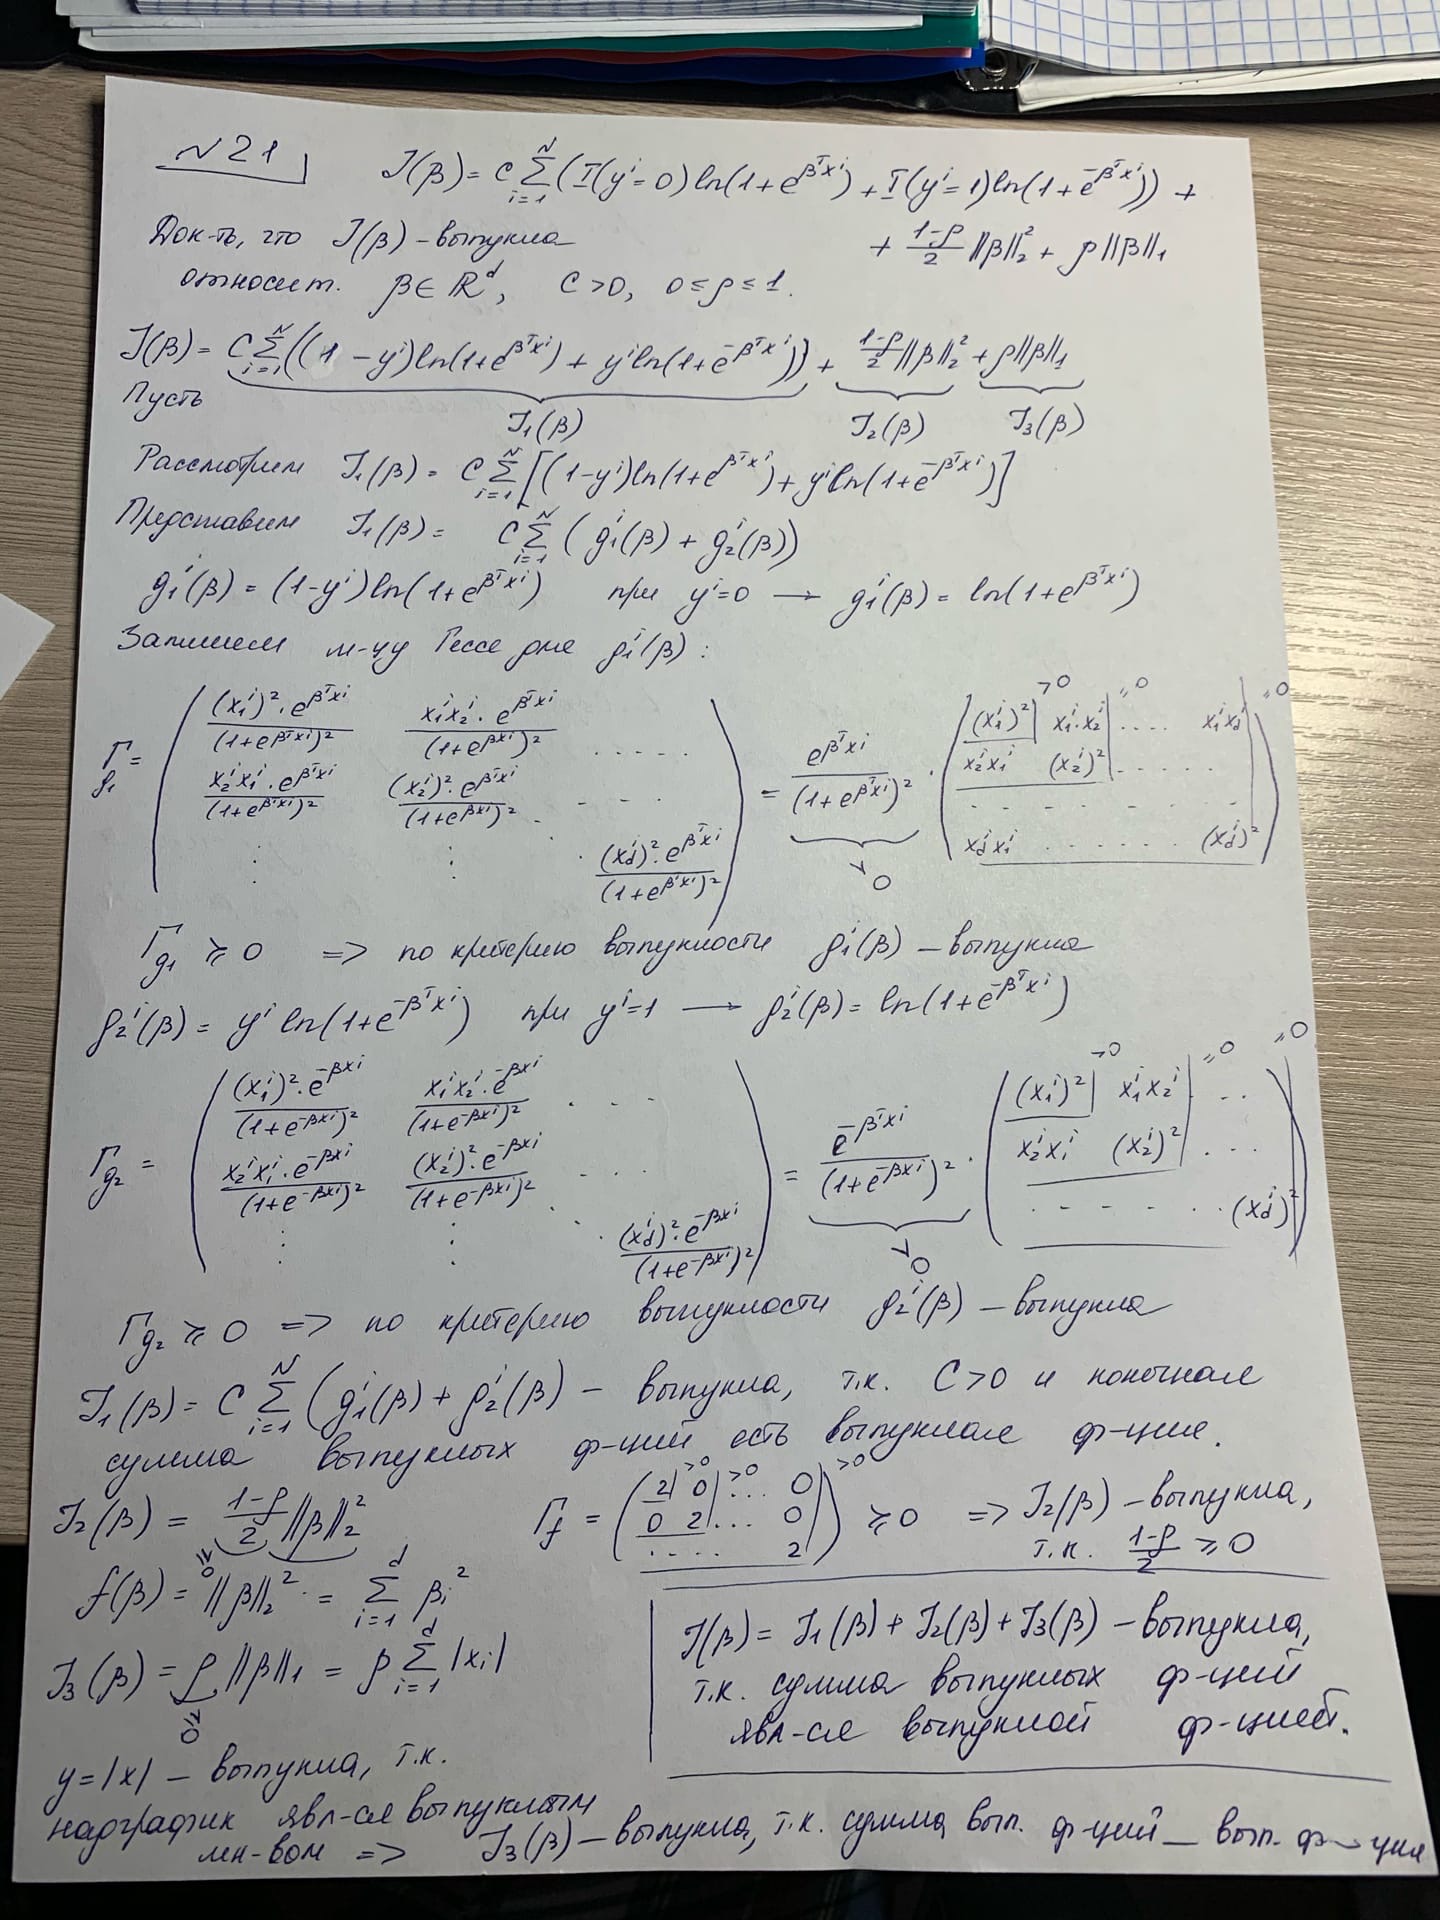 N21 J(β) = C∑_{i=1}^{N} (I(yⁱ=0) ln(1+e^{βᵀxⁱ}) + I(yⁱ=1) ln(1+e^{-βᵀxⁱ})) +
+ (1-ρ)/2 ||β||₂² + ρ||β||₁
Док-ть, что J(β) - выпукла
относит. β ∈ ℝᵈ, C>0, 0≤ρ≤1.
J(β) = C∑_{i=1}^{N} ((1-yⁱ) ln(1+e^{βᵀxⁱ}) + yⁱ ln(1+e^{-βᵀxⁱ})) + (1-ρ)/2 ||β||₂² + ρ||β||₁
Пусть J₁(β) J₂(β) J₃(β)
Рассмотрим J₁(β) = C∑_{i=1}^{N} [(1-yⁱ) ln(1+e^{βᵀxⁱ}) + yⁱ ln(1+e^{-βᵀxⁱ})]
Представим J₁(β) = C∑_{i=1}^{N} (g₁ⁱ(β) + g₂ⁱ(β))
g₁ⁱ(β) = (1-yⁱ) ln(1+e^{βᵀxⁱ}) при yⁱ=0 → g₁ⁱ(β) = ln(1+e^{βᵀxⁱ})
Запишем м-цу Гессе для g₁ⁱ(β):
>0 =0 =0
(x₁ⁱ)²·e^{βᵀxⁱ}/(1+e^{βᵀxⁱ})² x₁ⁱx₂ⁱ·e^{βᵀxⁱ}/(1+e^{βxⁱ})² ..... (x₁ⁱ)² x₁ⁱ·x₂ⁱ .... x₁ⁱx_dⁱ
Г_{g₁} = x₂ⁱx₁ⁱ·e^{βᵀxⁱ}/(1+e^{βᵀxⁱ})² (x₂ⁱ)²·e^{βᵀxⁱ}/(1+e^{βxⁱ})² ... = e^{βᵀxⁱ}/(1+e^{βᵀxⁱ})² · x₂ⁱx₁ⁱ (x₂ⁱ)² .....
⋮ ⋮ (x_dⁱ)²·e^{βᵀxⁱ}/(1+e^{βᵀxⁱ})² >0 x_dⁱx₁ⁱ ...... (x_dⁱ)²
Г_{g₁} ≥ 0 => по критерию выпуклости g₁ⁱ(β) - выпукла
g₂ⁱ(β) = yⁱ ln(1+e^{-βᵀxⁱ}) при yⁱ=1 → g₂ⁱ(β) = ln(1+e^{-βᵀxⁱ})
>0 =0 =0
(x₁ⁱ)²·e^{-βxⁱ}/(1+e^{-βxⁱ})² x₁ⁱx₂ⁱ·e^{-βxⁱ}/(1+e^{-βxⁱ})² ... (x₁ⁱ)² x₁ⁱx₂ⁱ ..
Г_{g₂} = x₂ⁱx₁ⁱ·e^{-βxⁱ}/(1+e^{-βxⁱ})² (x₂ⁱ)²·e^{-βxⁱ}/(1+e^{-βxⁱ})² ... = e^{-βᵀxⁱ}/(1+e^{-βxⁱ})² · x₂ⁱx₁ⁱ (x₂ⁱ)² ...
⋮ ⋮ (x_dⁱ)²·e^{-βxⁱ}/(1+e^{-βxⁱ})² >0 ...... (x_dⁱ)²
Г_{g₂} ≥ 0 => по критерию выпуклости g₂ⁱ(β) - выпукла
J₁(β) = C∑_{i=1}^{N} (g₁ⁱ(β) + g₂ⁱ(β)) - выпукла, т.к. C>0 и конечная
сумма выпуклых ф-ций есть выпуклая ф-ция.
J₂(β) = (1-ρ)/2 ||β||₂² Г_f = (2 0 ... 0 / 0 2 ... 0 / .... 2) >0 >0 >0 ≥ 0 => J₂(β) - выпукла,
≥0 т.к. (1-ρ)/2 ≥ 0
f(β) = ||β||₂² = ∑_{i=1}^{d} βᵢ²
J₃(β) = ρ||β||₁ = ρ∑_{i=1}^{d} |xᵢ|
≥0
J(β) = J₁(β) + J₂(β) + J₃(β) - выпукла,
т.к. сумма выпуклых ф-ций
явл-ся выпуклой ф-цией.
y=|x| - выпукла, т.к.
надграфик явл-ся выпуклым
мн-вом => J₃(β) - выпукла, т.к. сумма вып. ф-ций - вып. ф-ция